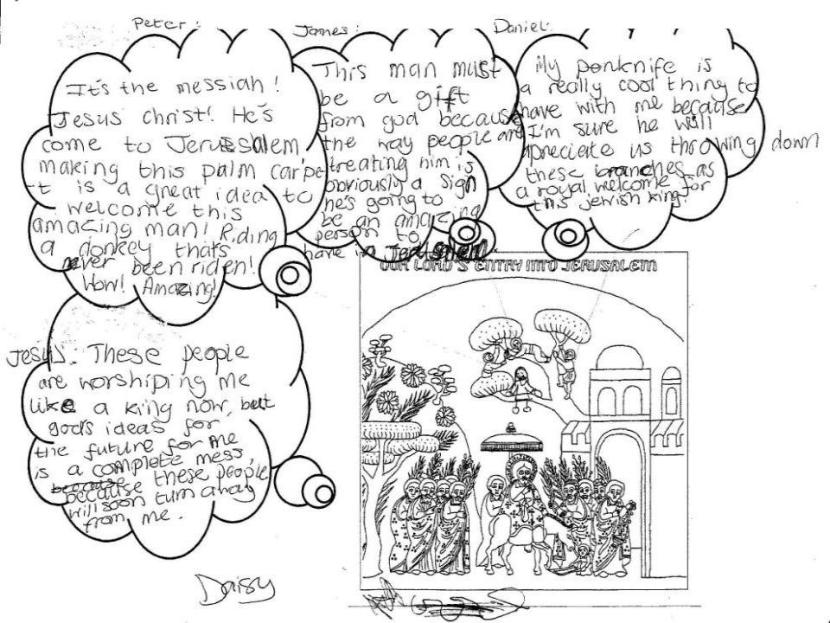 Peter:
It's the messiah!
Jesus christ! He's
come to Jerusalem
making this palm carpe
t is a great idea to
welcome this
amazing man! Riding
a donkey thats
never been riden!
Wow! Amazing!
James:
This man must
be a gift
from god because
the way people are
treating him is
obviously a sign
he's going to
be an amazing
person to
have in Jerusalem.
Daniel:
My penknife is
a really cool thing to
have with me because
I'm sure he will
apreciate us throwing down
these branches as
a royal welcome for
this jewish king!
Jesus: These people
are worshiping me
like a king now, but
god's ideas for
the future for me
is a complete mess,
because these people
will soon turn away
from me.
OUR LORD'S ENTRY INTO JERUSALEM
Daisy